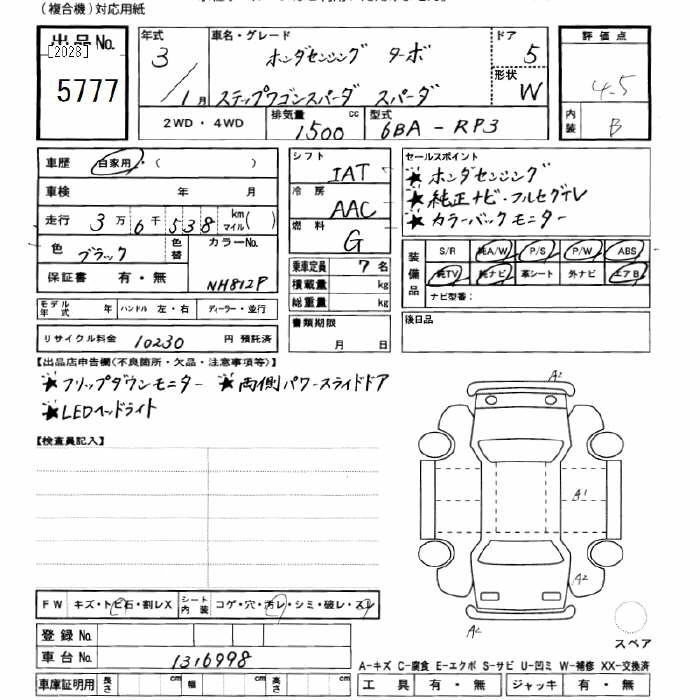 (複合機)対応用紙
出品No.
[2028]
5777
年式 3 / 1月
車名・グレード ホンダセンシング ターボ
ステップワゴンスパーダ スパーダ
ドア 5
形状 W
評価点 4.5
内装 B
2WD・4WD
排気量 1500 cc
型式 6BA-RP3
車歴 自家用・( )
車検 年 月
走行 3万6千538 km マイル( )
色 ブラック 色替 カラーNo. NH812P
保証書 有・無
モデル年式 年 ハンドル 左・右 ディーラー・並行
リサイクル料金 10230 円 預託済
シフト IAT
冷房 AAC
燃料 G
乗車定員 7 名
積載量 kg
総重量 kg
書類期限 月 日
セールスポイント
★ホンダセンシング
★純正ナビ・フルセグTV
★カラーバックモニター
装備品 S/R 純A/W P/S P/W ABS
純TV 純ナビ 革シート 外ナビ エアB
ナビ型番:
後日品
【出品店申告欄(不良箇所・欠品・注意事項等)】
★フリップダウンモニター ★両側パワースライドドア
★LEDヘッドライト
【検査員記入】
A2
A1
A2
スペア
FW キズ・トビ石・割レX シート内装 コゲ・穴・汚レ・シミ・破レ・スレ
登録No.
車台No. 1316998
車庫証明用 長さ cm 幅 cm 高さ cm
A-キズ C-腐食 E-エクボ S-サビ U-凹ミ W-補修 XX-交換済
工具 有・無 ジャッキ 有・無